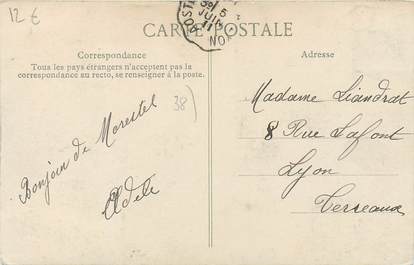 12 €
CARTE POSTALE
Correspondance
Tous les pays étrangers n'acceptent pas la
correspondance au recto, se renseigner à la poste.
Adresse
38)
Bonjour de Morestel
Adèle
Madame Liandrat
8 Rue Lafont
Lyon
Terreaux